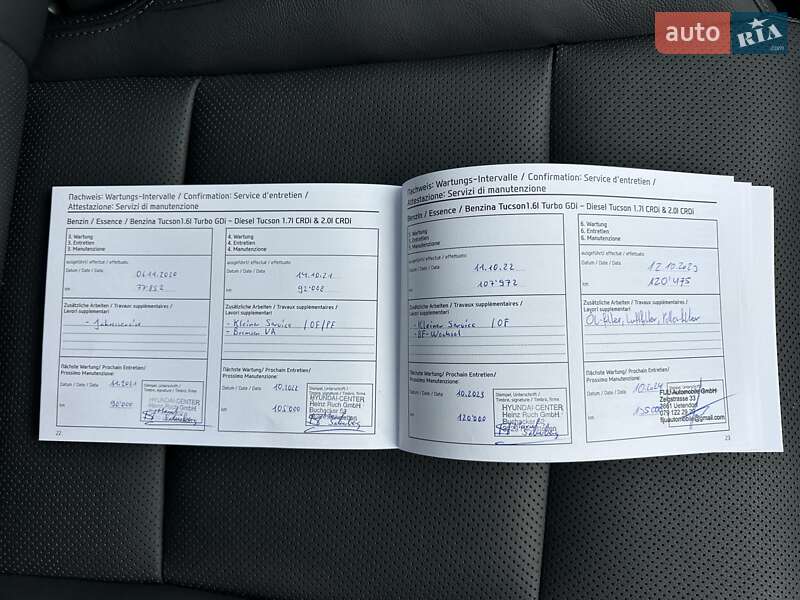 auto RIA .com
Nachweis: Wartungs-Intervalle / Confirmation: Service d'entretien /
Attestazione: Servizi di manutenzione
Benzin / Essence / Benzina Tucson 1.6l Turbo GDi – Diesel Tucson 1.7l CRDi & 2.0l CRDi
3. Wartung
3. Entretien
3. Manutenzione
ausgeführt/ effectué / effettuato:
Datum / Date / Data 04.11.2020
km 77.852
Zusätzliche Arbeiten / Travaux supplémentaires /
Lavori supplementari
- Jahresservice
Nächste Wartung/ Prochain Entretien/
Prossimo Manutenzione:
Datum / Date / Data 11.2021
km 90'000
Stempel, Unterschrift /
Timbre, signature / Timbro, firma
HYUNDAI-CENTER
Heinz Ruch GmbH
22
4. Wartung
4. Entretien
4. Manutenzione
ausgeführt/ effectué / effettuato:
Datum / Date / Data 14.10.21
km 92'008
Zusätzliche Arbeiten / Travaux supplémentaires /
Lavori supplementari
- Kleiner Service / OF / PF
- Bremsen VA
Nächste Wartung/ Prochain Entretien/
Prossimo Manutenzione:
Datum / Date / Data 10.2022
km 105'000
Stempel, Unterschrift /
Timbre, signature / Timbro, firma
HYUNDAI-CENTER
Heinz Ruch GmbH
Buchacker 53
Nachweis: Wartungs-Intervalle / Confirmation: Service d'entretien /
Attestazione: Servizi di manutenzione
Benzin / Essence / Benzina Tucson 1.6l Turbo GDi – Diesel Tucson 1.7l CRDi & 2.0l CRDi
Wartung
Entretien
Manutenzione
ausgeführt/ effectué / effettuato:
Datum / Date / Data 11.10.22
km 107'972
Zusätzliche Arbeiten / Travaux supplémentaires /
Lavori supplementari
- Kleiner Service / OF
- BF-Wechsel
Nächste Wartung/ Prochain Entretien/
Prossimo Manutenzione:
Datum / Date / Data 10.2023
km 120'000
HYUNDAI-CENTER
Heinz Ruch GmbH
Buchacker 53
6. Wartung
6. Entretien
6. Manutenzione
ausgeführt/ effectué / effettuato:
Datum / Date / Data 12.10.2023
km 120'475
Zusätzliche Arbeiten / Travaux supplémentaires /
Lavori supplementari
Öl-filter, Luftfilter, Pollenfilter
Nächste Wartung/ Prochain Entretien/
Prossimo Manutenzione:
Datum / Date / Data 10.2024
km 135'000
FUU Automobile GmbH
Zelgstrasse 33
3661 Uetendorf
079 122 29
fjuautomobile@gmail.com
23